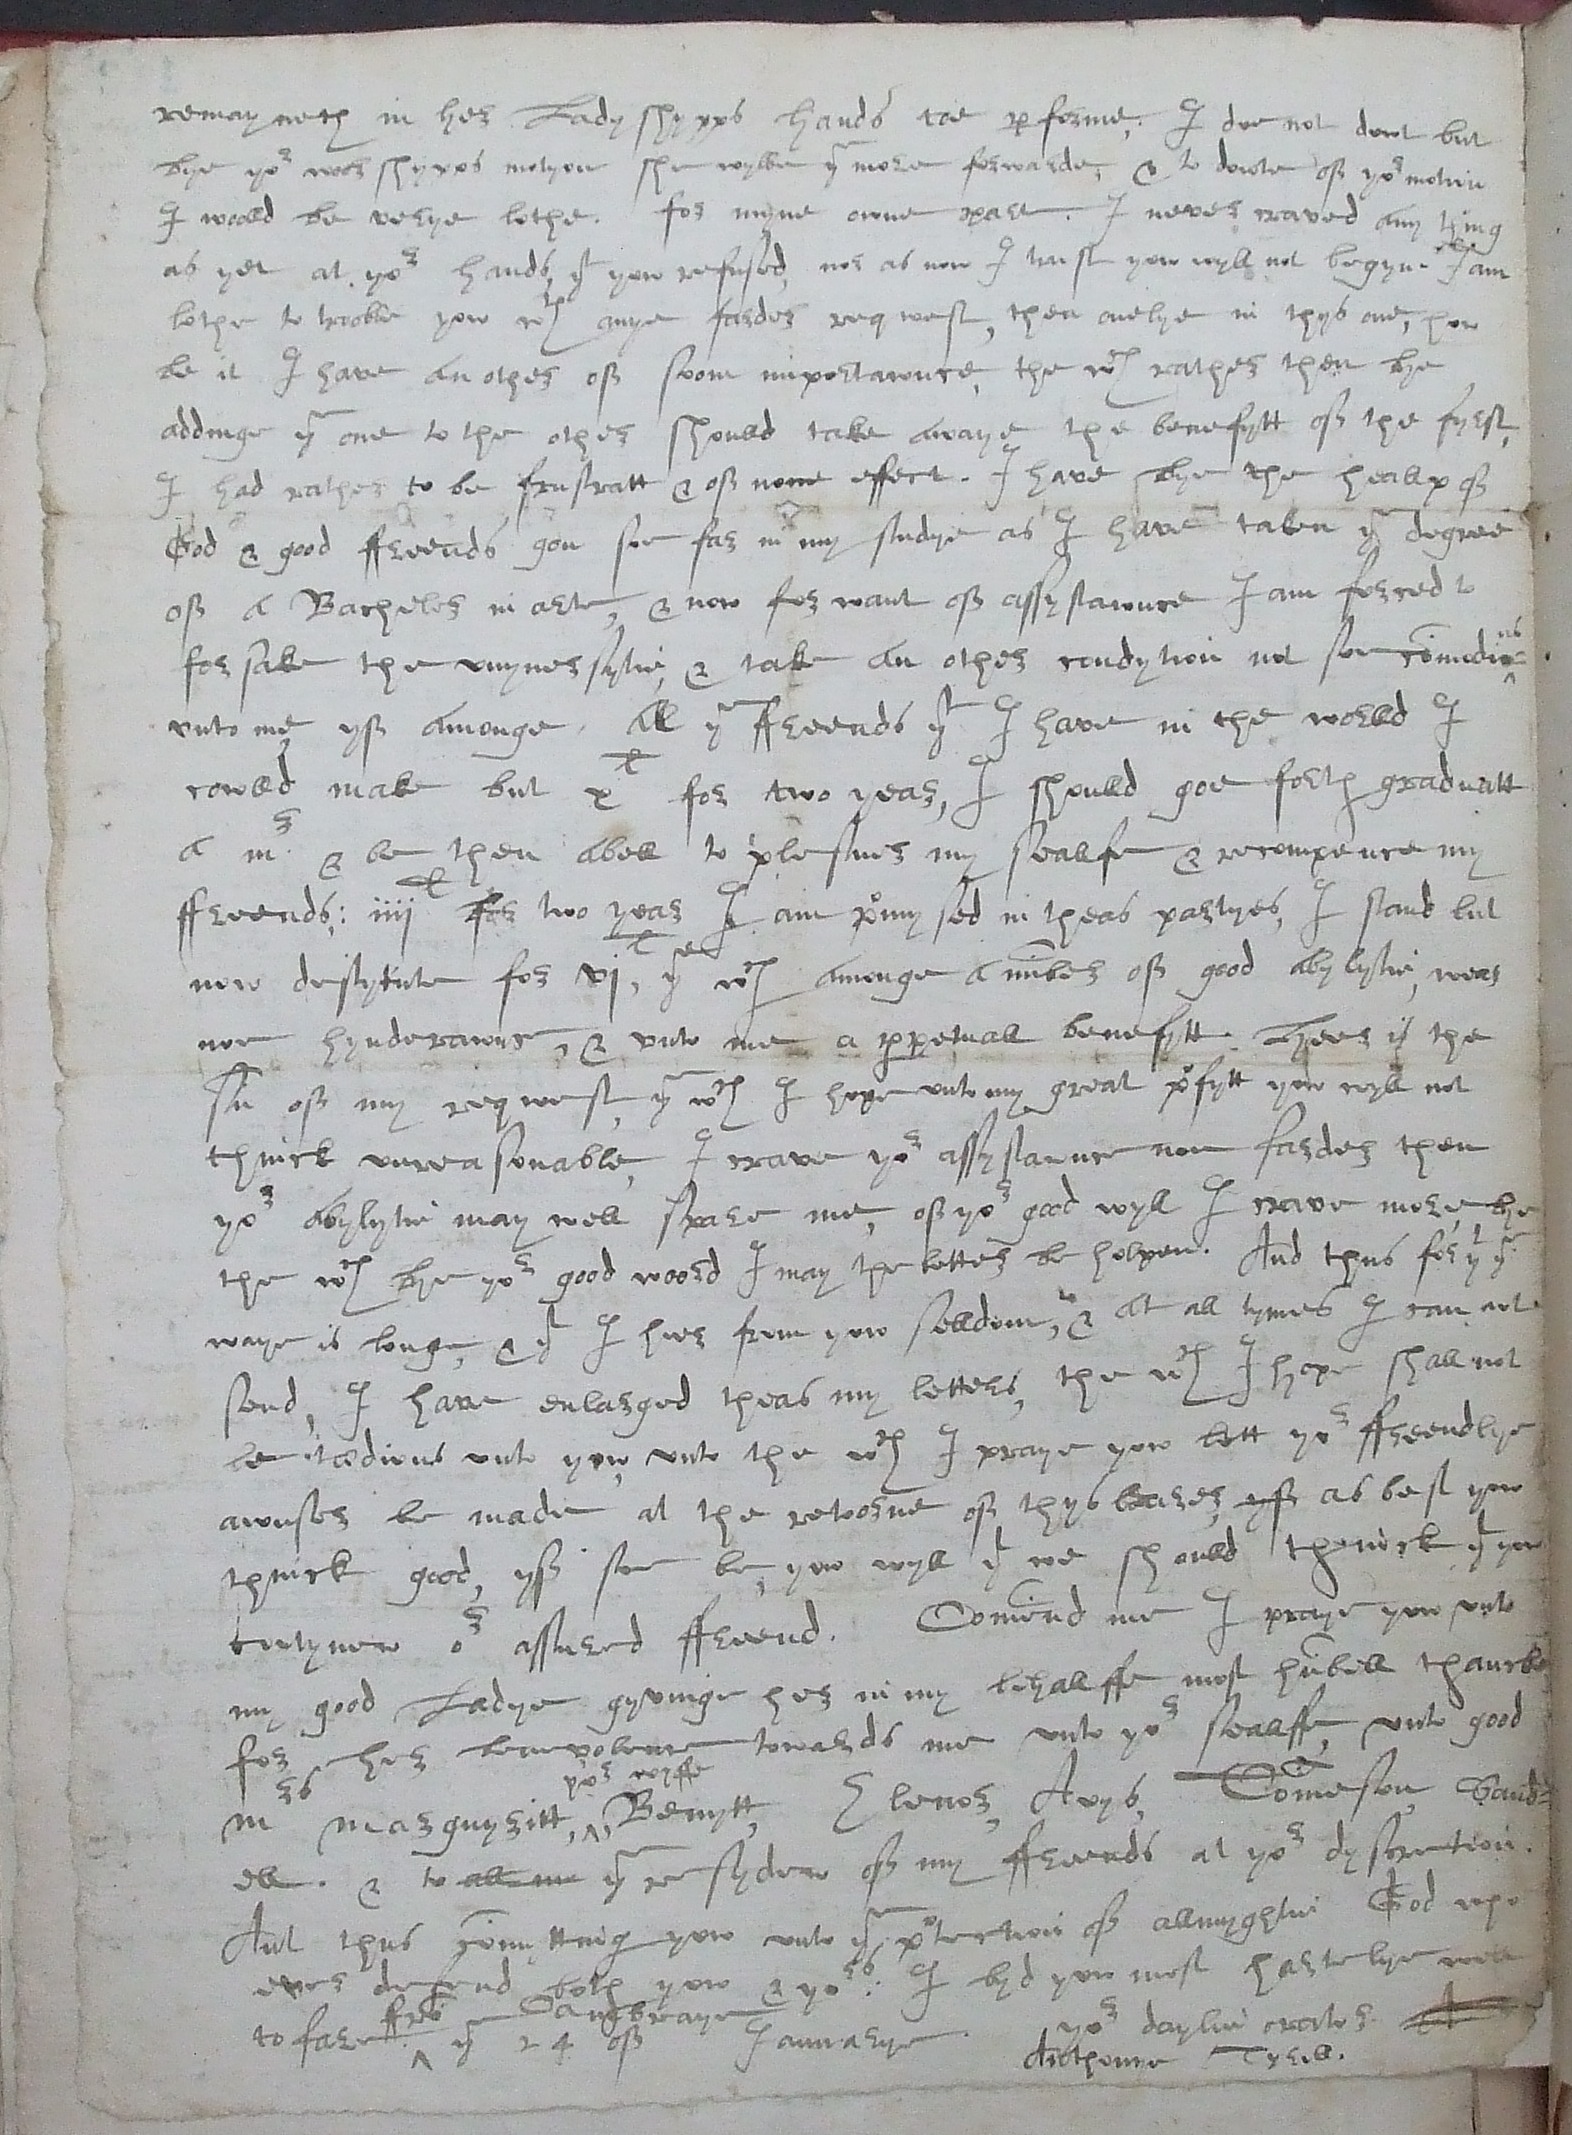 remayneth in her Ladyshypps hands toe p[er]forme, I doe not dowt but
bye yor worshypps motyon she wylbe ye more forwarde, & to dowte off yor motion
I woolld be verye lothe. for myne owne parte. I never craved any thing
as yet at yor hands, yt yow refused, nor as now I trust yow wyll not begyn. I am
lothe to trooble yow wth anye farder reqwest, then onelye in thys one, how
be it I have an other off soom importawnce, the wch rather then bye
addinge ye one to the other should take awaye the benefytt off the fyrst,
I had rather to be frustratt & off none effect. I have bye the heallp off
God & good ffreends gon soe far in my studye as I have taken ye degree
off A Bacheler in arte, & now for want off assystawnce I am forced to
forsake the vnyversytie, & take an other condytion not soe comodious
vnto me, yff amonge all ye ffreends yt I have in the worlld I
cowlld make but xl for two year, I shoulld goe forth graduatt
A mr & be then abell to plesure my seallfe & recompence my
ffreends: iiijl for two year I am promysed in theas partyes, I stand but
now destytute for vjl, ye wch amonge A nūber off good abylytie, wear
noe hynderawnce, & vnto me a p[er]petuall benefytt. Heer is the
sū off my reqwest, ye wch I hope vnto my great profytt yow wyll not
thinck vnreasonable, I crave yor assystawnce noe farder then
yor abylytie may well spare me, off yor good wyll I crave more, bye
the wch bye yor good woord I may the better be holpen. And thus for yt ye
waye is longe, & yt I hier from yow selldom, & at all tymes I can not
send, I have enlarged theas my letters, the wch I hope shall not
be tædious vnto yow, vnto the wch I praye yow lett yor ffreendlye
awnser be made at the retoorne off thys bearer, yff as best yow
thinck good, yff soe be, yow wyll yt we shoulld thenick yt yow
contynew or assured ffreend. Comend me I praye yow vnto
my good Ladye gyvinge her in my behallffe most hūbell thancks
for her benevolence towards me vnto yor seallffe, vnto good
mrs marguyritt, ^ yor wyffe, Benytt, Elenor, Avys, Tomeson, Sand=
ell. & to all my ye resydew off my ffreends at yor dyscretion.
And thus comyttinge yow vnto ye protection off allmyghtie God who
ever defend both yow & yors: I byd yow most hartelye well
to fare. ^ ffro Cambreaye ye 24 off Januarye. yor daylie orator
Anthonye Tyrell.